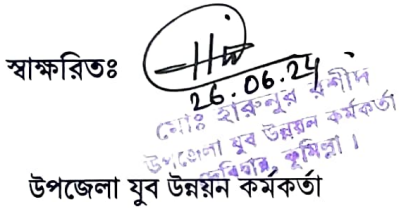 স্বাক্ষরিতঃ
26.06.24
মোঃ হারুনুর রশীদ
উপজেলা যুব উন্নয়ন কর্মকর্তা
দেবিদ্বার, কুমিল্লা।
উপজেলা যুব উন্নয়ন কর্মকর্তা